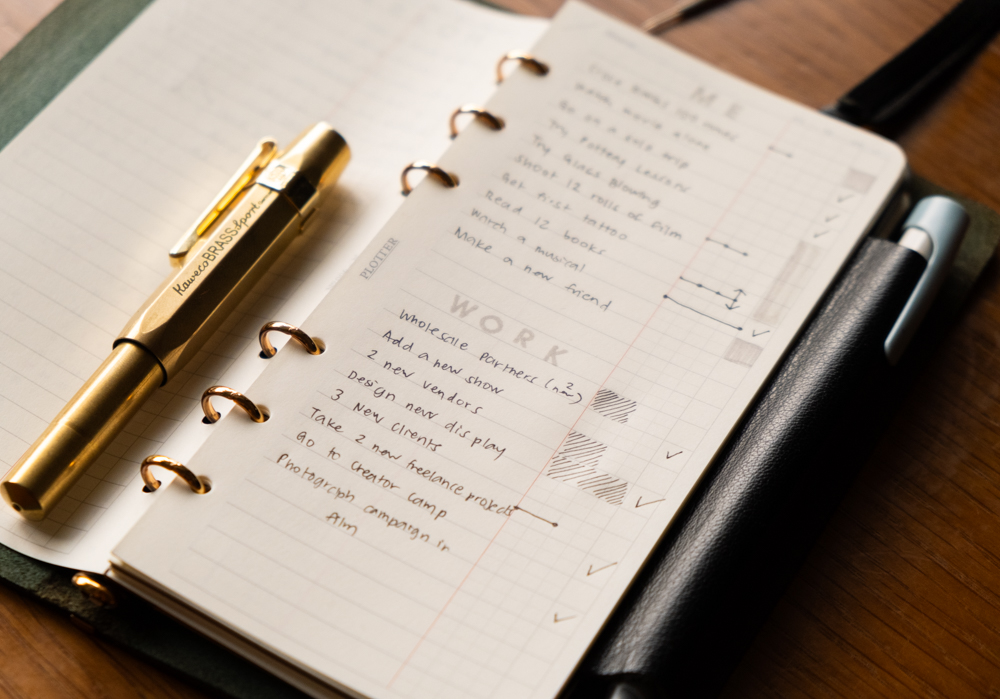 ME
Go on a solo trip
Try Pottery Lessons
Try Glass Blowing
Shoot 12 rolls of film
Get first tattoo
Read 12 books
Watch a musical
Make a new friend
WORK
Wholesale partners
Add a new show
2 new vendors
Design new display
3 New Clients
Take 2 new freelance projects
Go to Creator Camp
Photograph campaign in
film
PLOTTER
Kaweco BRASS Sport